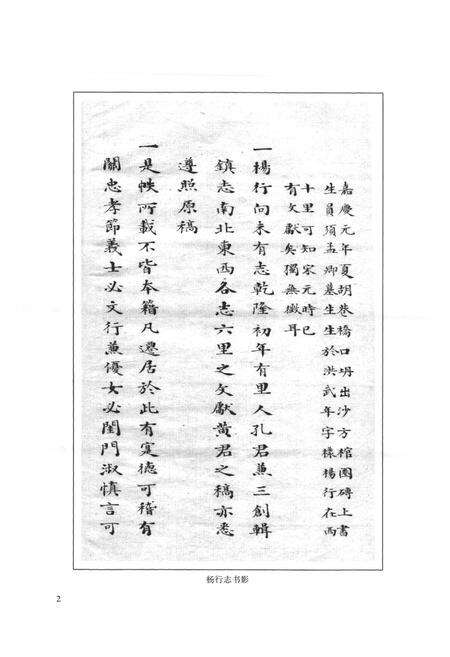 嘉慶元年夏胡巷橋口坍出沙方棺團磚上書
生員須孟卿墓生生於洪武年字樣楊行在西
十里可知宋元時已
有文獻矣獨無徵耳
一楊行向未有志乾隆初年有里人孔君兼三創輯
鎮志南北東西各志六里之文獻黃君之稿亦悉
遵照原稿
一是帙所載不皆本籍凡遷居於此有寔德可稽有
關忠孝節義士必文行兼優女必閨門淑慎言可
杨行志书影
2